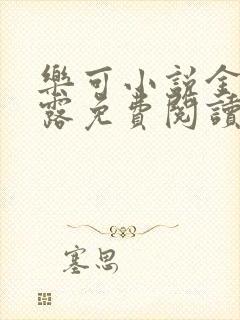 樂可小說全
露免費閱讀
塞思